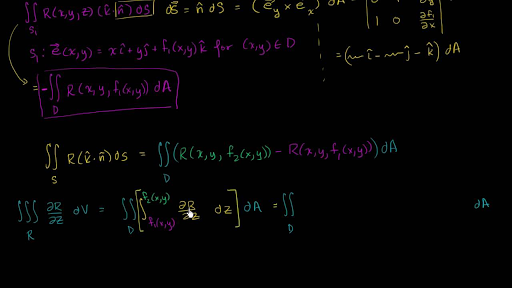 ∬_{S₁} R(x,y,z) (k̂·n̂) dS    dS⃗ = n̂ dS = (e⃗_y × e⃗_x) dA
1 0 ∂f₁/∂x
S₁: e⃗(x,y) = x î + y ĵ + f₁(x,y) k̂ for (x,y) ∈ D
= (~ î - ~ ĵ - k̂) dA
= -∬_D R(x, y, f₁(x,y)) dA
∬_S R(k̂·n̂) dS = ∬_D (R(x, y, f₂(x,y)) - R(x, y, f₁(x,y))) dA
∭_R ∂R/∂z dV = ∬_D [∫_{f₁(x,y)}^{f₂(x,y)} ∂R/∂z dz] dA = ∬_D dA